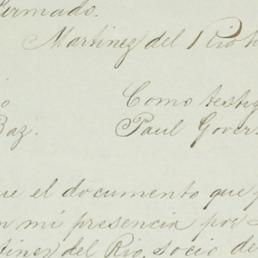 Firmado.
Martinez del Rio
Como testig
Baz. Paul Gover
ue el documento que
en mi presencia por
tinez del Rio, socio de